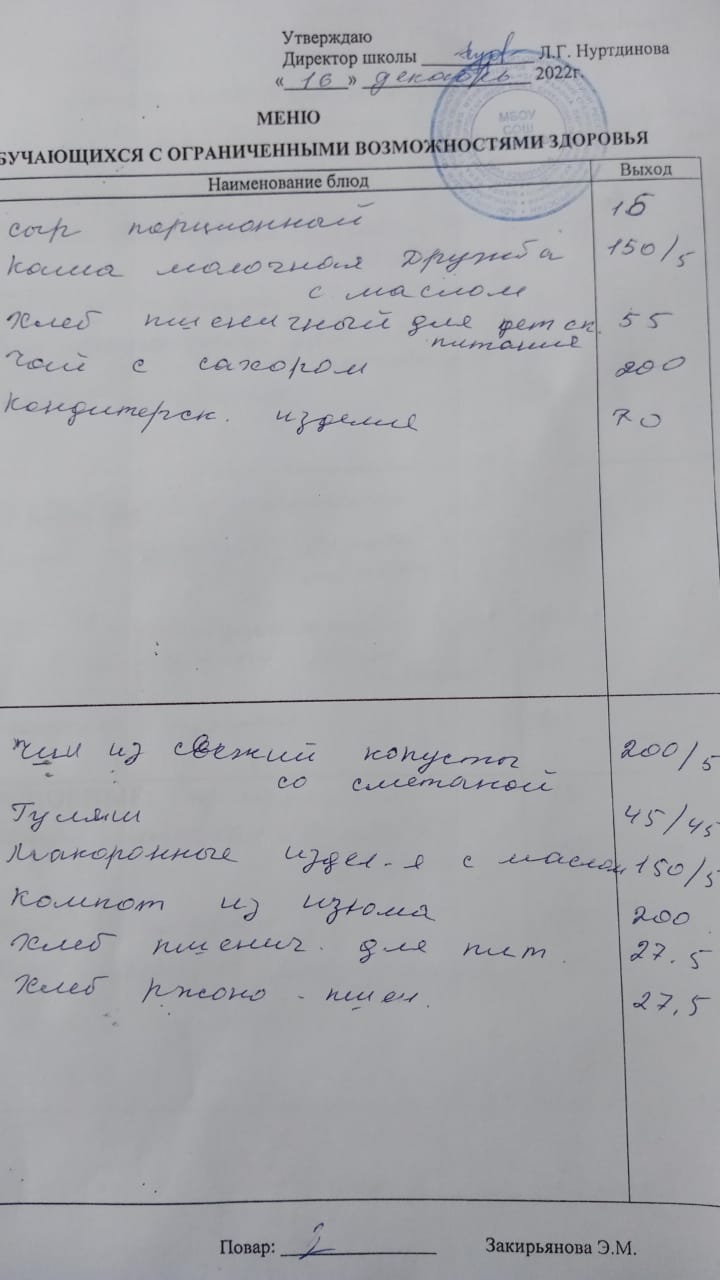 Утверждаю
Директор школы Л.Г. Нуртдинова
« 16 » декабрь 2022г.
МЕНЮ
БУЧАЮЩИХСЯ С ОГРАНИЧЕННЫМИ ВОЗМОЖНОСТЯМИ ЗДОРОВЬЯ
Наименование блюд Выход
сыр порционный 15
Каша молочная Дружба 150/5
с маслом
Хлеб пшеничный для детск. 55
питания
Чай с сахором 200
Кондитерск. изделие 70
Щи из свежий копусты 200/5
со сметаной
Гуляш 45/45
Макоронные издел-я с маслом 150/5
Компот из изюма 200
Хлеб пшенич. для пит. 27.5
Хлеб ржоно-пшен. 27,5
Повар: Закирьянова Э.М.
МБОУ
СОШ